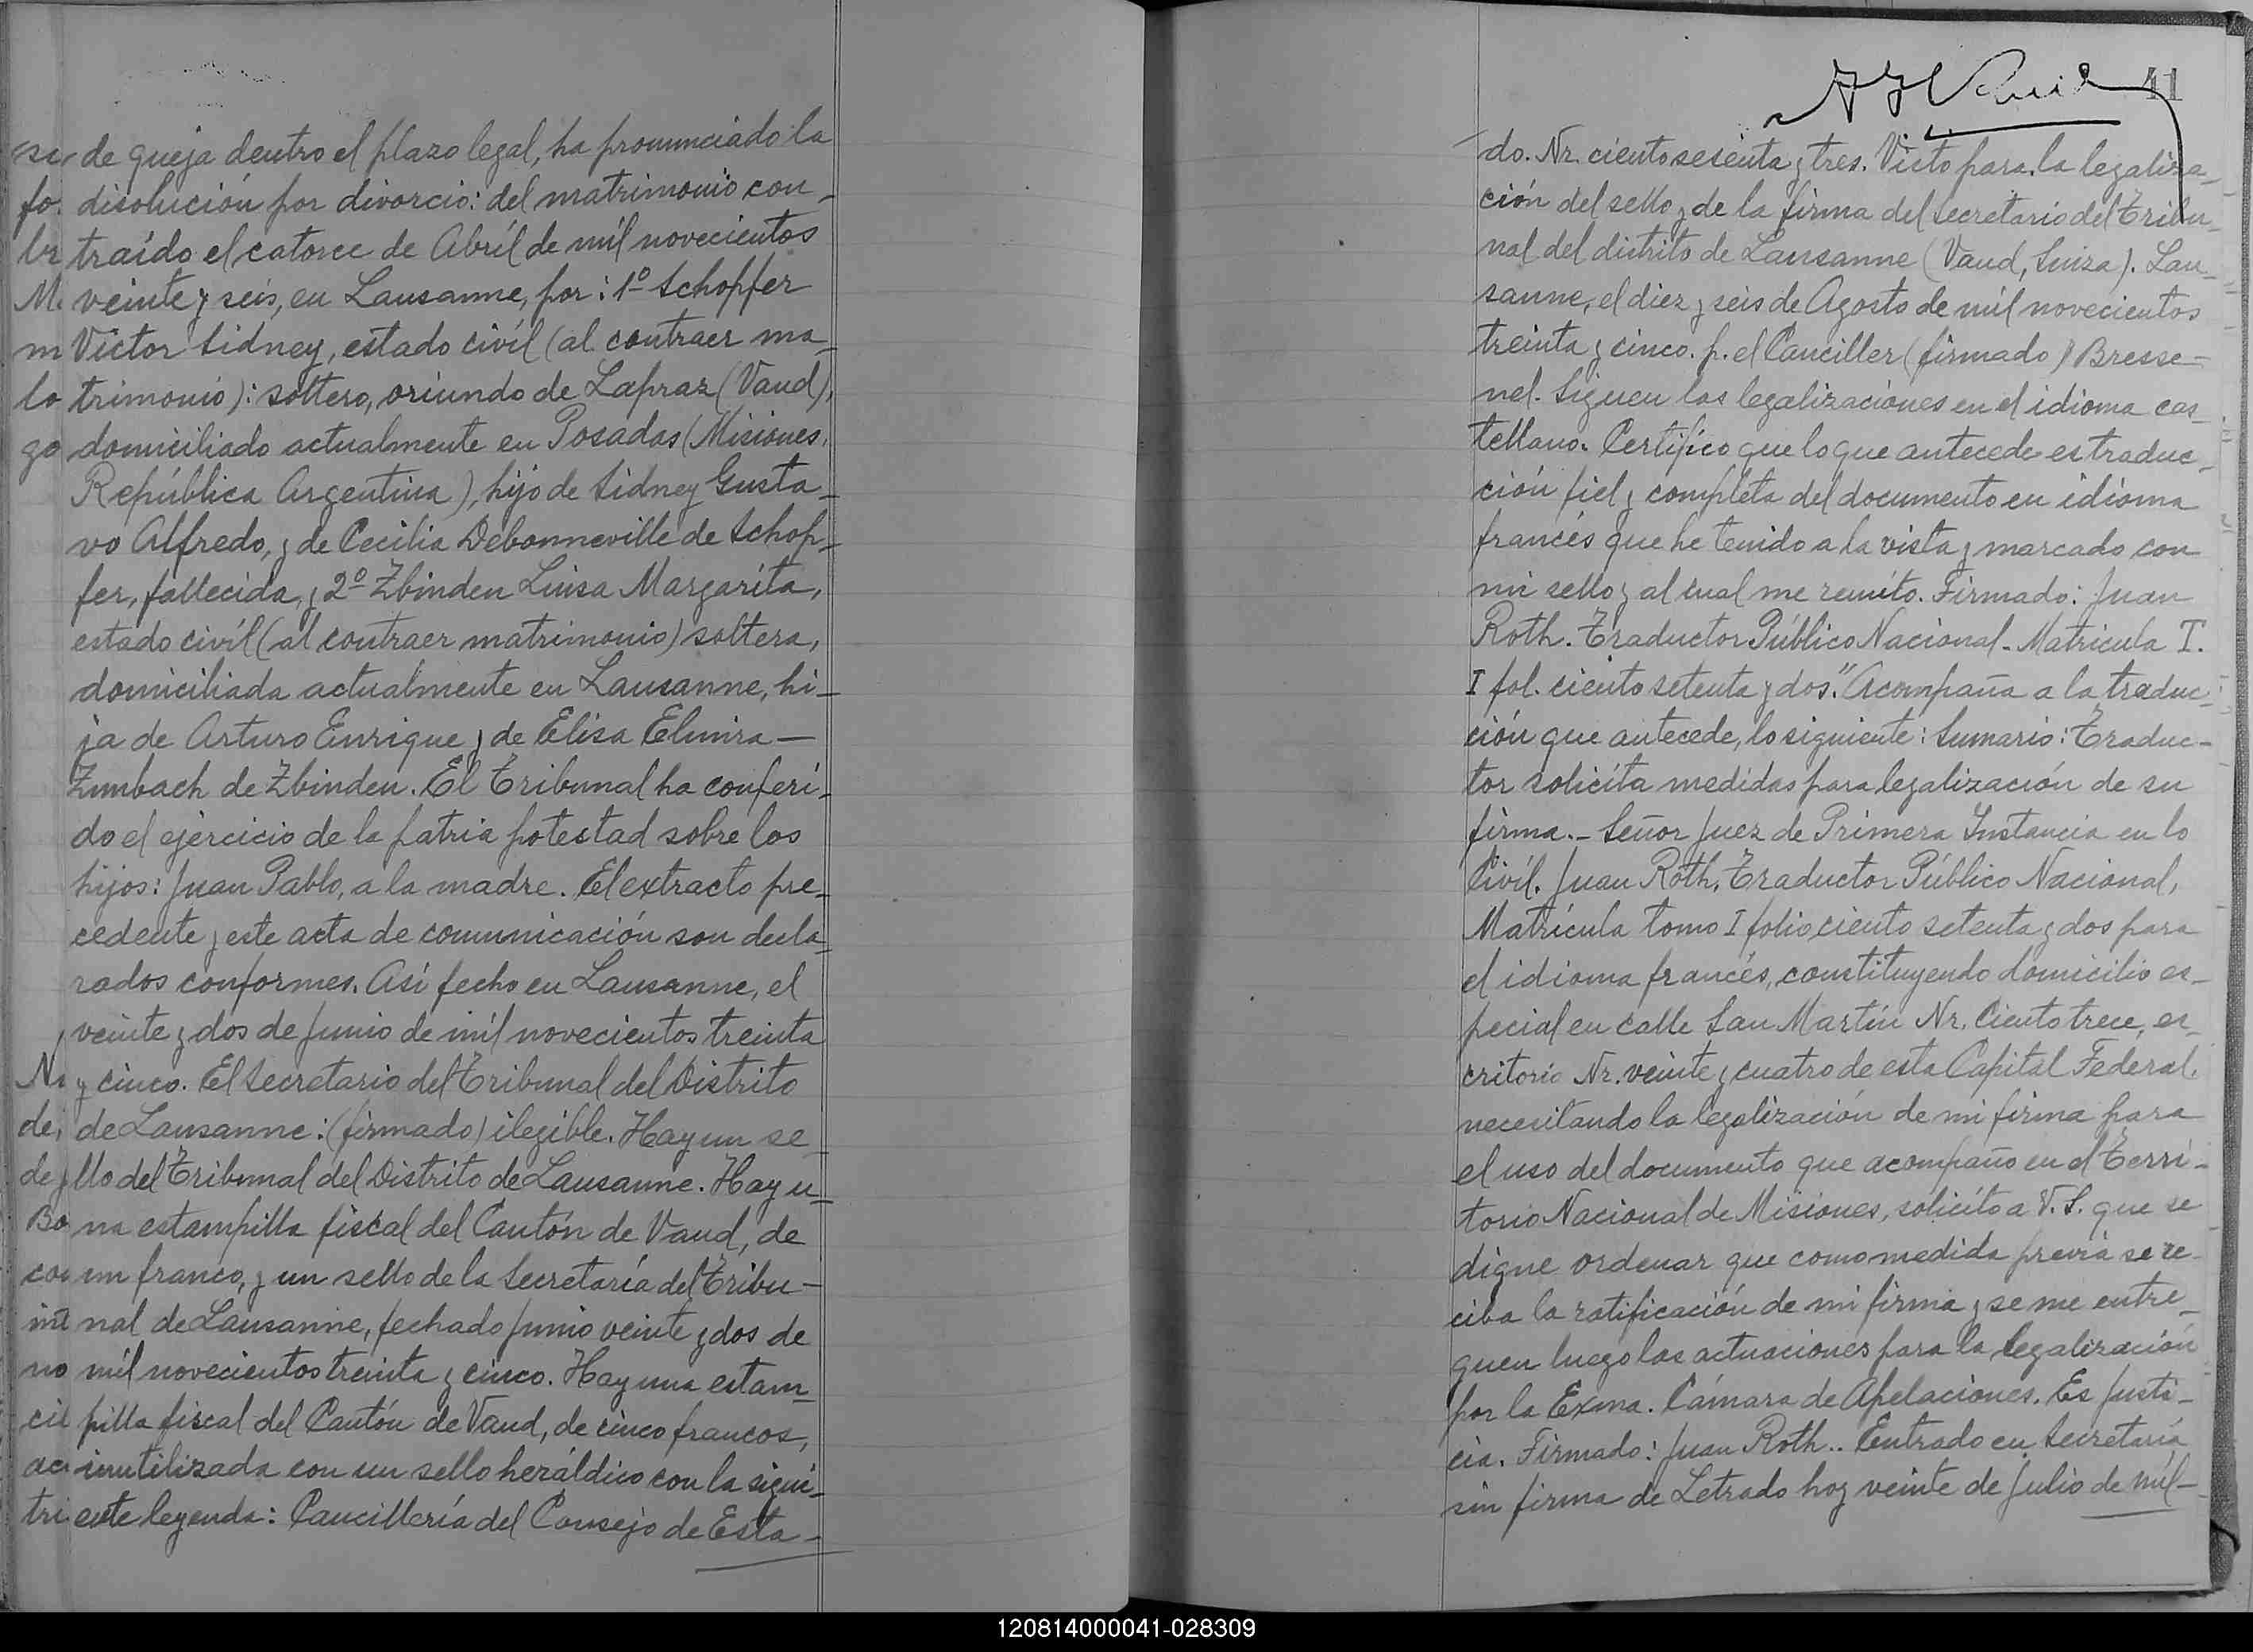 de queja dentro el plazo legal, ha pronunciado la
disolución por divorcio: del matrimonio con-
traído el catorce de Abríl de mil novecientos
veinte y seis, en Lausanne, por: 1º Schopfer
Victor Sidney, estado civíl (al contraer ma-
trimonio): soltero, oriundo de Lapraz (Vaud),
domiciliado actualmente en Posadas (Misiones,
República Argentina), hijo de Sidney Gusta-
vo Alfredo, y de Cecilia Debonneville de Schop-
fer, fallecida, y 2º Zbinden Luisa Margarita,
estado civíl (al contraer matrimonio) soltera,
domiciliada actualmente en Lausanne, hi-
ja de Arturo Enrique y de Elisa Elmira—
Zumbach de Zbinden. El Tribunal ha conferi-
do el ejercicio de la patria potestad sobre los
hijos: Juan Pablo, a la madre. El extracto pre-
cedente y este acta de comunicación son decla-
rados conformes. Así fecho en Lausanne, el
veinte y dos de Junio de mil novecientos treinta
y cinco. El Secretario del Tribunal del Distrito
de Lausanne: (firmado) ilegible. Hay un se-
llo del Tribunal del Distrito de Lausanne. Hay u-
na estampilla fiscal del Cantón de Vaud, de
un franco, y un sello de la Secretaría del Tribu-
nal de Lausanne, fechado Junio veinte y dos de
mil novecientos treinta y cinco. Hay una estam-
pilla fiscal del Cantón de Vaud, de cinco francos,
inutilizada con un sello heráldico con la sigui-
ente leyenda: Cancillería del Consejo de Esta-
se
fo.
br
M.
m
lo
go
Nr
de
de
Bo
con
mt
no
cie
ac
tri
41
do. Nr. ciento sesenta y tres. Visto para la legaliza-
ción del sello y de la firma del secretario del Tribu-
nal del distrito de Lausanne (Vaud, Suiza). Lau-
sanne, el diez y seis de Agosto de mil novecientos
treinta y cinco. p. el Canciller (firmado) Bresse-
nel. Siguen las legalizaciones en el idioma cas-
tellano. Certifico que lo que antecede es traduc-
ción fiel y completa del documento en idioma
francés que he tenido a la vista y marcado con
mi sello y al cual me remito. Firmado: Juan
Roth. Traductor Público Nacional. Matricula T.
I fol. ciento setenta y dos." Acompaña a la traduc-
ción que antecede, lo siguiente: Sumario: Traduc-
tor solicita medidas para legalización de su
firma.- Señor Juez de Primera Instancia en lo
Civíl. Juan Roth, Traductor Público Nacional,
Matrícula tomo I folio ciento setenta y dos para
el idioma francés, constituyendo domicilio es-
pecial en calle San Martín Nr. Ciento trece, es-
critorio Nr. veinte y cuatro de esta Capital Federal,
necesitando la legalización de mi firma para
el uso del documento que acompaño en el Terri-
torio Nacional de Misiones, solicito a V. S. que se
digne ordenar que como medida previa se re-
ciba la ratificación de mi firma y se me entre-
guen luego las actuaciones para la legalización
por la Exma. Cámara de Apelaciones. Es Justi-
cia. Firmado: Juan Roth.. Entrado en Secretaría
sin firma de Letrado hoy veinte de Julio de mil-
120814000041-028309